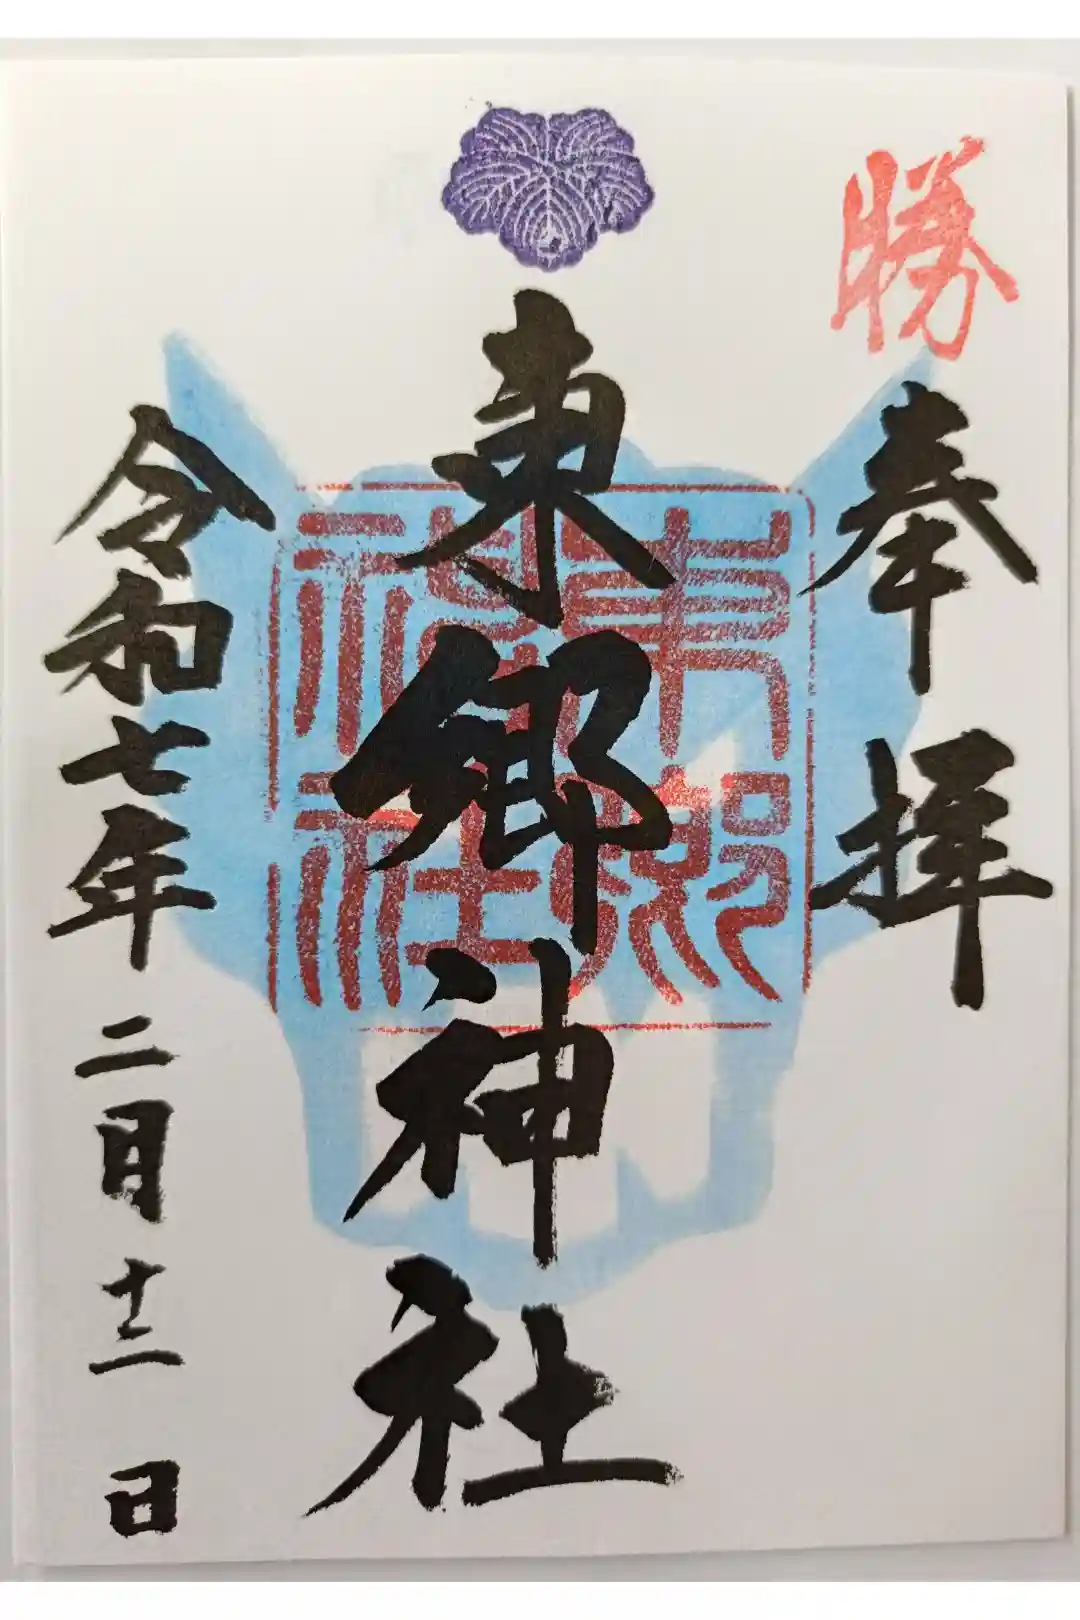 勝
奉拝
東郷神社
東郷
神社
令和七年二月十二日